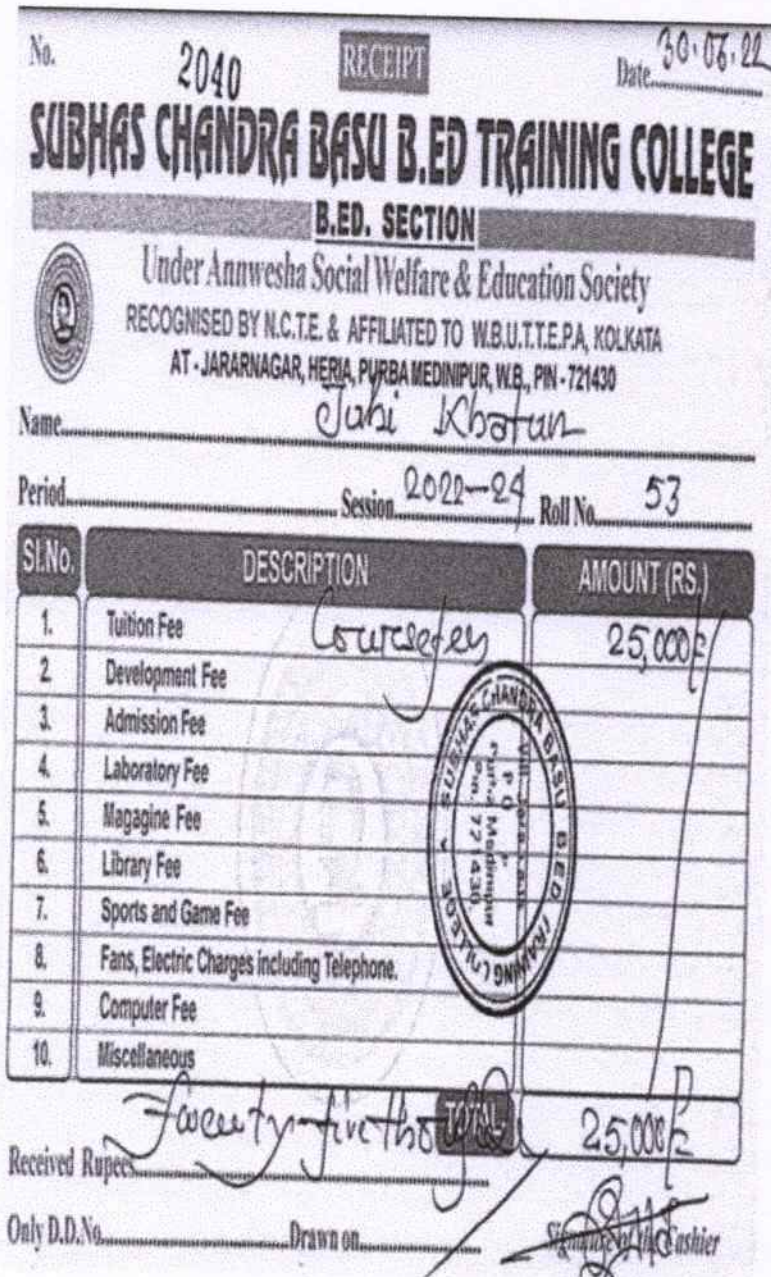 No. 2040 RECEIPT Date 30.06.22
SUBHAS CHANDRA BASU B.ED TRAINING COLLEGE
B.ED. SECTION
Under Annwesha Social Welfare & Education Society
RECOGNISED BY N.C.T.E. & AFFILIATED TO W.B.U.T.T.E.P.A, KOLKATA
AT - JARARNAGAR, HERIA, PURBA MEDINIPUR, W.B., PIN - 721430
Name Juhi Khatun
Period Session 2022-24 Roll No. 53
Sl.No. DESCRIPTION AMOUNT (RS.)
1. Tuition Fee Course fees 25,000/-
2. Development Fee
3. Admission Fee
4. Laboratory Fee
5. Magagine Fee
6. Library Fee
7. Sports and Game Fee
8. Fans, Electric Charges including Telephone.
9. Computer Fee
10. Miscellaneous
TOTAL 25,000/-
Received Rupees Twenty five
Only D.D.No. Drawn on Signature of the Cashier
SUBHAS CHANDRA BASU B.ED TRAINING COLLEGE